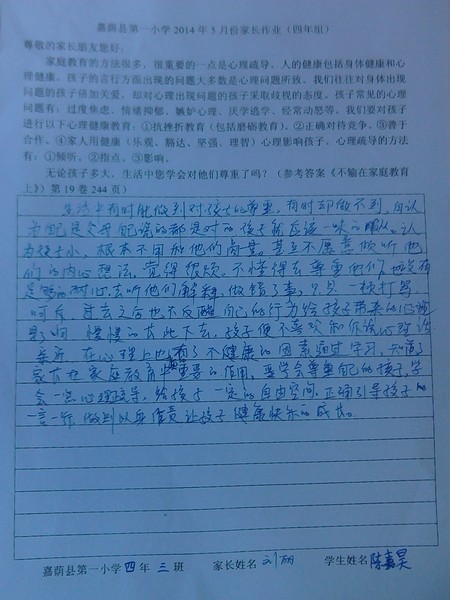 嘉荫县第一小学 2014 年 5 月份家长作业（四年组）
尊敬的家长朋友您好：
家庭教育的方法很多，很重要的一点是心理疏导。人的健康包括身体健康和
心理健康。孩子的言行方面出现的问题大多数是心理问题所致。我们往往对身体出现
问题的孩子倍加关爱，却对心理出现问题的孩子采取歧视的态度。孩子常见的心理
问题有：过度焦虑、情绪抑郁、嫉妒心理、厌学逃学、经常动怒等。我们要对孩子
进行以下心理健康教育：①抗挫折教育（包括磨砺教育）。②正确对待竞争。③善于
合作。④家人用健康（乐观、豁达、坚强、理智）心理影响孩子。心理疏导的方法
有：①倾听。②指点。③影响。
无论孩子多大，生活中您学会对他们尊重了吗？（参考答案《不输在家庭教育
上》）第 19 卷 244 页）
生活中有时能做到对孩子的尊重，有时却做不到，自认
为自己是父母自己说的都是对的孩子就应该一味的顺从。认
为孩子小，根本不用和他们商量。甚至不愿意倾听他
们的内心想法，觉得很烦，不懂得去尊重他们，也没有
足够的耐心去听他们解释，做错了事，只是一顿打骂
呵斥，过去之后也不反醒自己的行为给孩子带来的心理
影响，慢慢的长此下去，孩子便不喜欢和你谈心
亲近，在心理上也有了不健康的因素。通过学习，知道了
家长在家庭教育中重要的作用，要学会尊重自己的孩子，学
会一些心理疏导，给孩子一定的自由空间，正确引导孩子的
一言一行，做到以身作责让孩子健康快乐的成长。
嘉荫县第一小学四年三班 家长姓名刘丽 学生姓名陈嘉昊